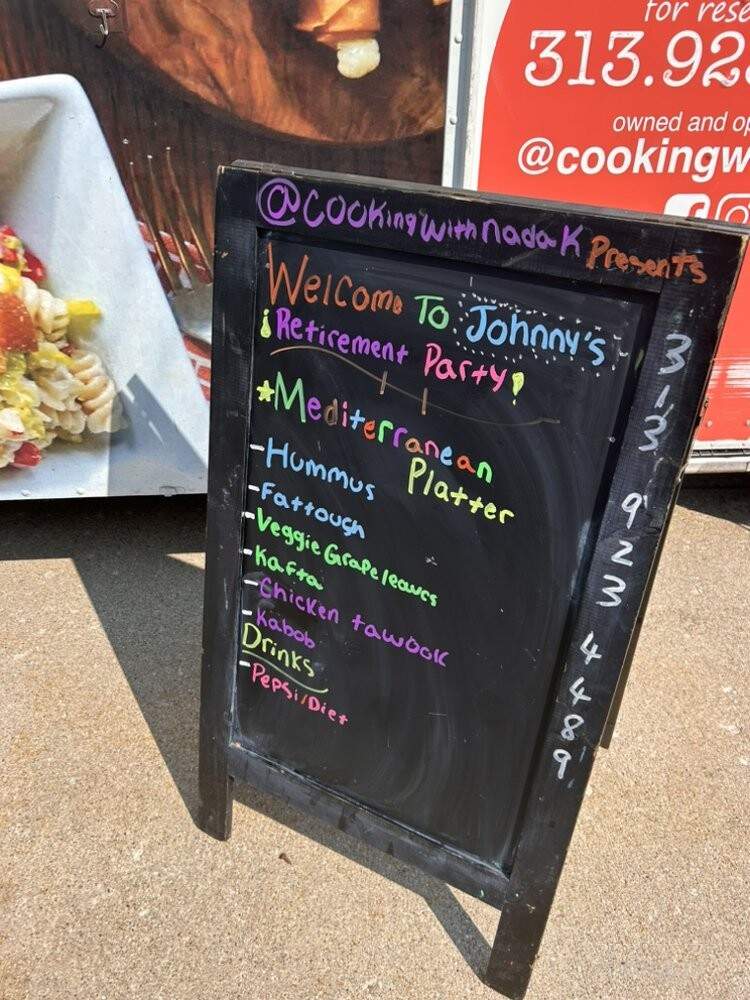 for
313.92
owned and
@cookingw
@cookingwithnadak Presents
Welcome To Johnny's
Retirement Party!
Mediterranean
Platter
-Hummus
-Fattough
-Veggie Grapeleaves
-Kafta
-Chicken tawook
-Kabob
Drinks
-Pepsi/Diet
313 923 4489